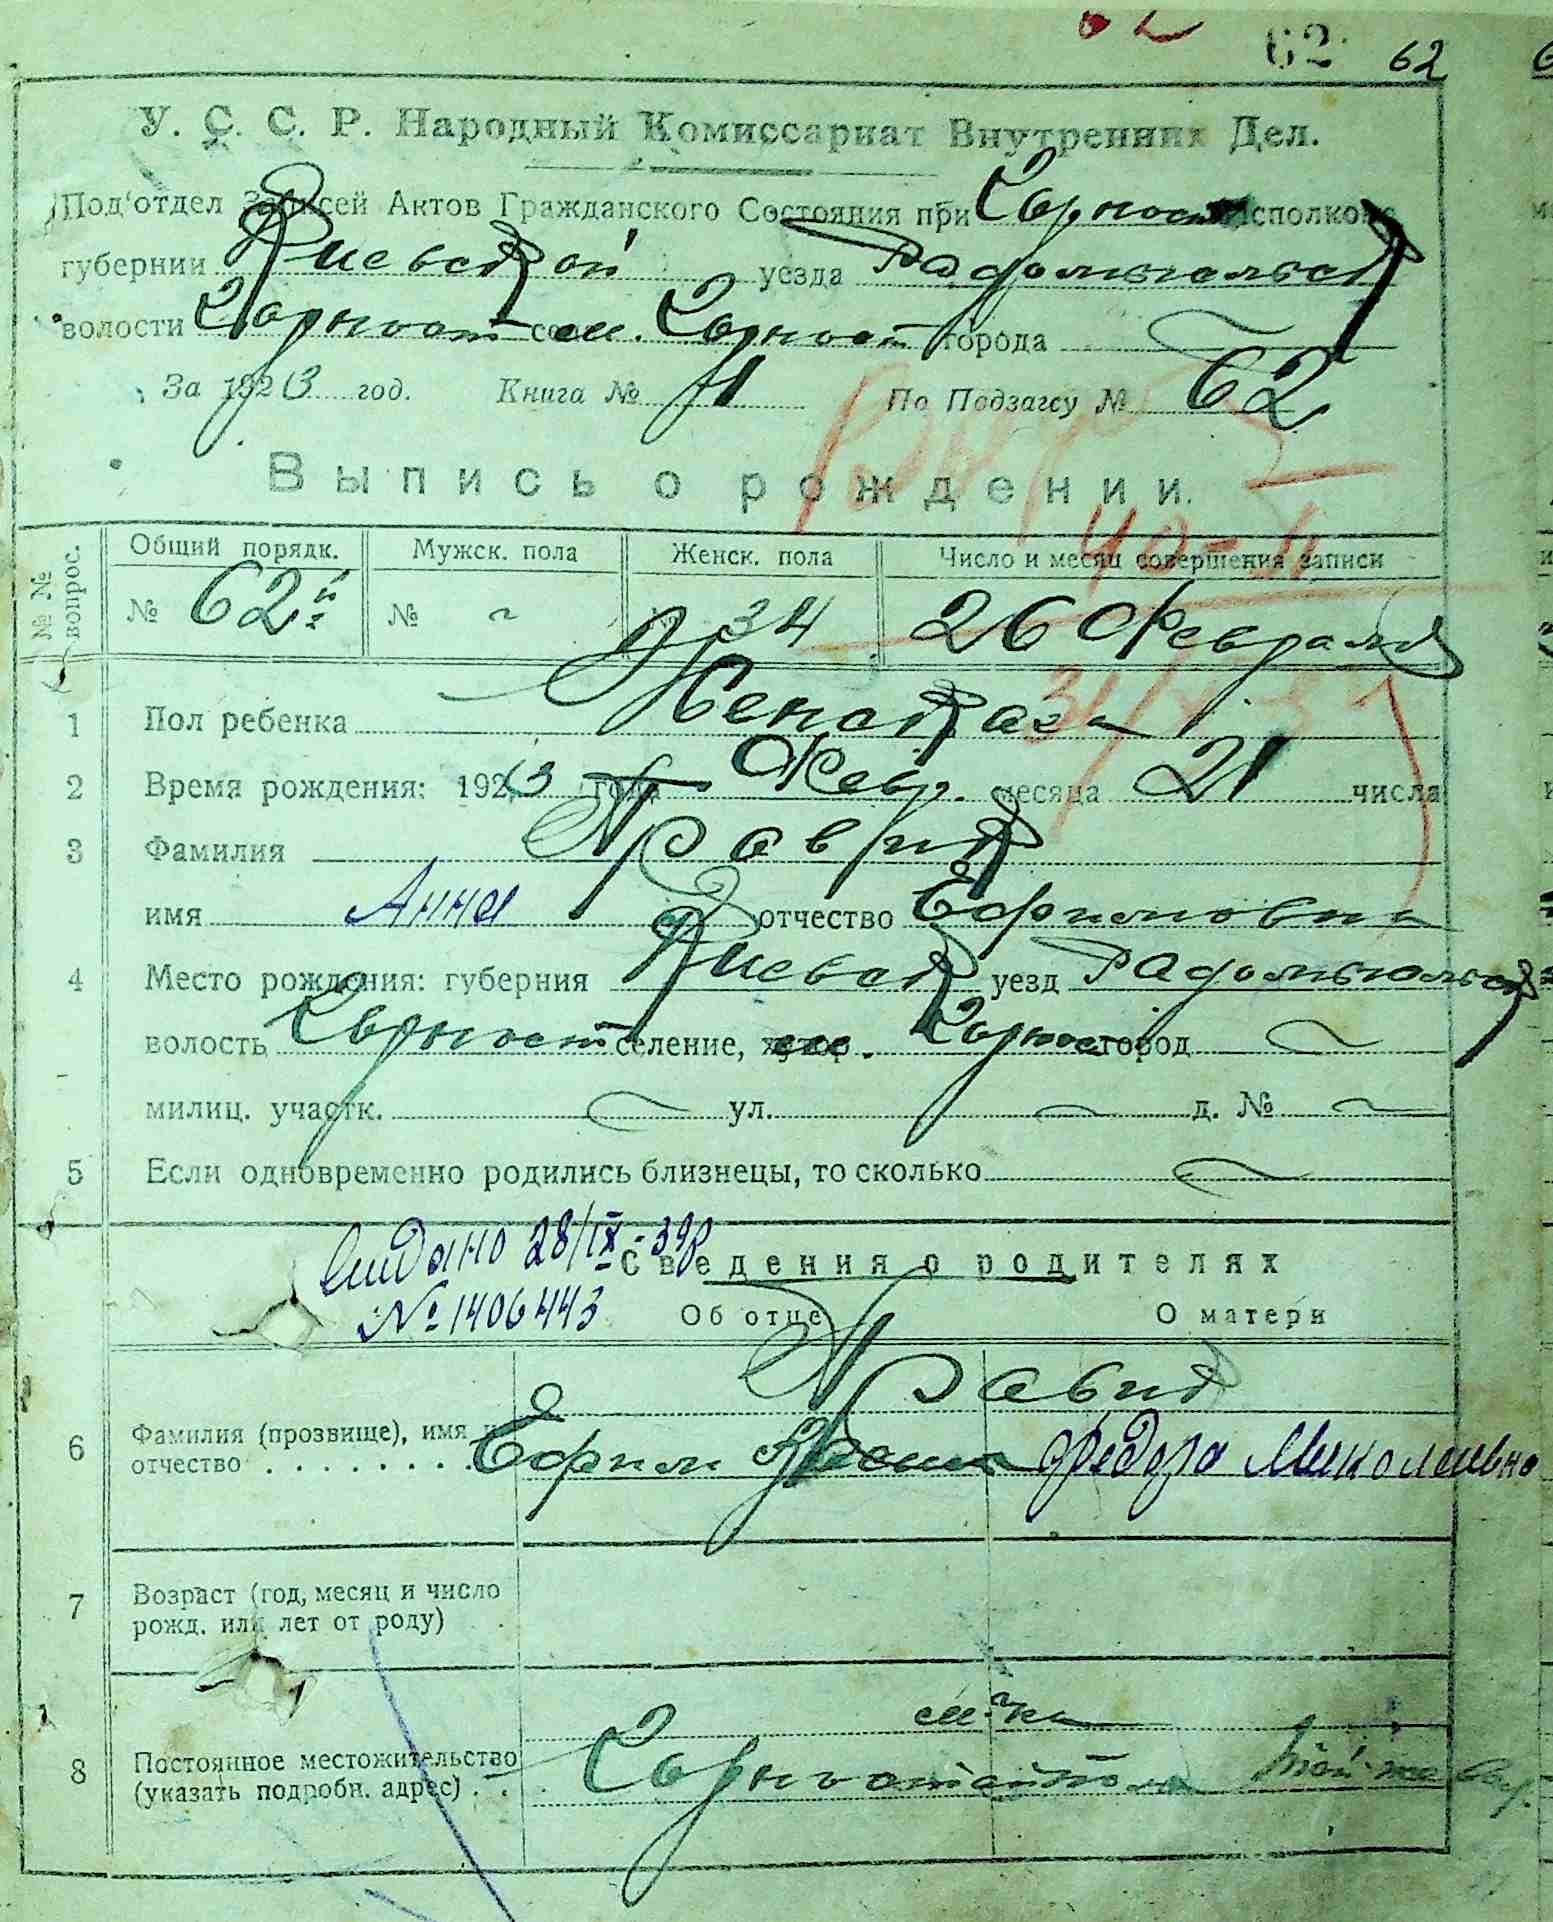 62 62
У. С. С. Р. Народный Комиссариат Внутренних Дел.
Под'отдел Записей Актов Гражданского Состояния при Исполкоме
губернии Киевской уезда Радомысльск
волости Чорност села м. Чорност города
За 1923 год. Книга № 1 По Подзагсу № 62
Выпись о рождении.
№№ вопрос. Общий порядк. Мужск. пола Женск. пола Число и месяц совершения записи
№ 62й № № 34 26 Февраля
1 Пол ребенка Женская
2 Время рождения: 1923 года Февр. месяца 21 числа
3 Фамилия
имя Анна отчество Ефимовна
4 Место рождения: губерния Киевск уезд Радомысльск
волость Чорност селение, хутор Чорност город
милиц. участк. ул. д. №
5 Если одновременно родились близнецы, то сколько
видано 28/IX-39р
№ 1406443
Сведения о родителях
Об отце О матери
6 Фамилия (прозвище), имя и
отчество Ефим Федора Миколаевна
7 Возраст (год, месяц и число
рожд. или лет от роду)
8 Постоянное местожительство
(указать подробн. адрес)